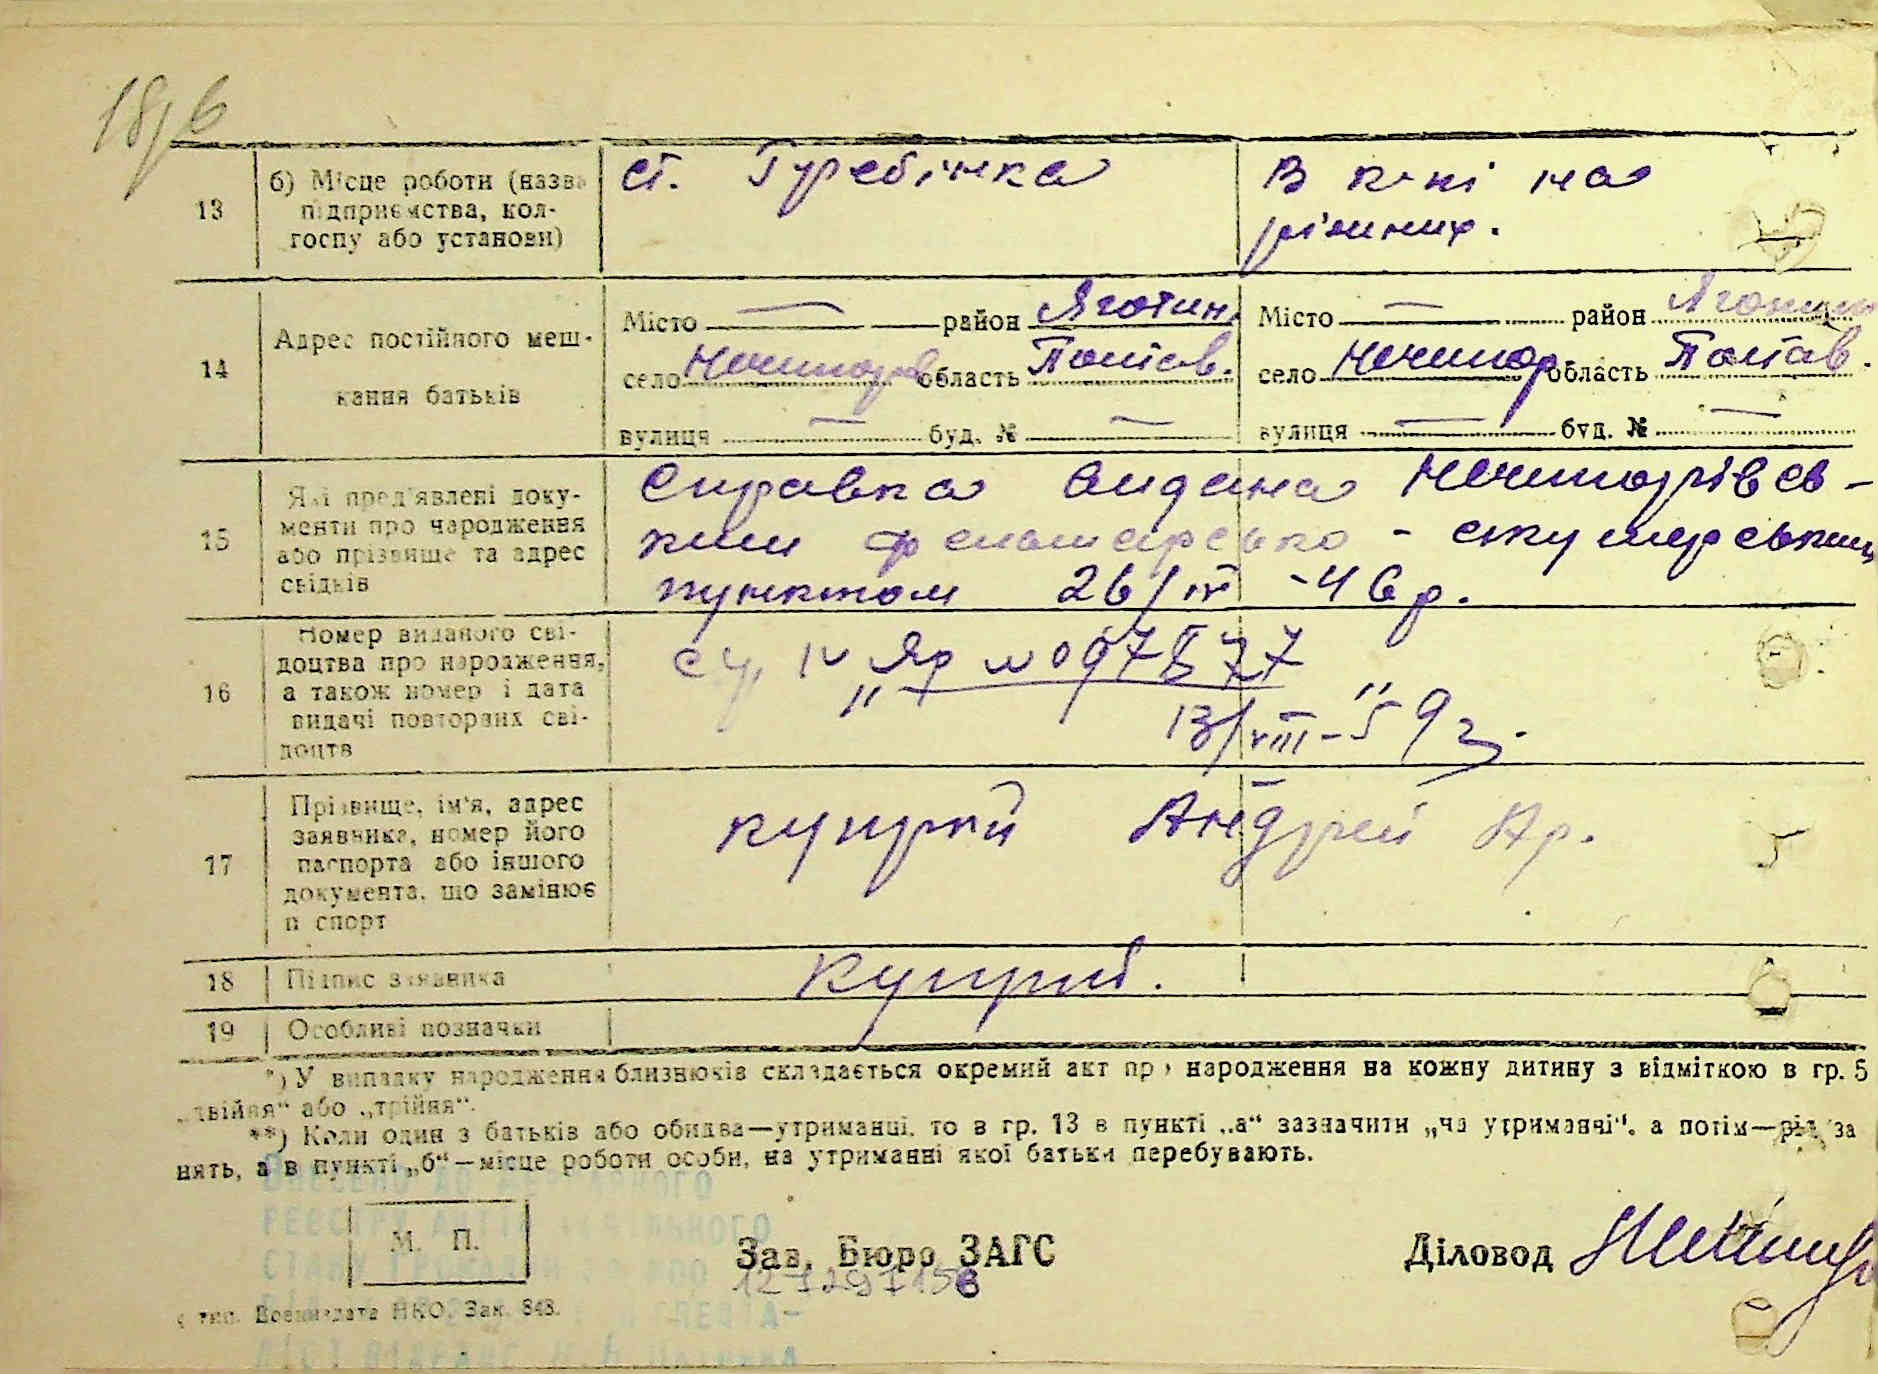 18/6
13
б) Місце роботи (назва
підприємства, кол-
госпу або установи)
ст. Гребінка
В к-ні на
різних.
14
Адрес постійного меш-
кання батьків
Місто — район Яготин.
село Нечипор область Полтав.
вулиця — буд. № —
Місто — район Яготин
село Нечипор. область Полтав.
вулиця — буд. № —
15
Які пред'явлені доку-
менти про народження
або прізвище та адрес
свідків
Справка видана Нечипорівсь-
ким фельшерсько - акушерським
пунктом 26/IV -46 р.
16
Номер виданого сві-
доцтва про народження,
а також номер і дата
видачі повторних сві-
доцтв
IV
13/VIII-59 г.
17
Прізвище, ім'я, адрес
заявника, номер його
паспорта або іншого
документа, що замінює
п спорт
Куприй Андрей Ар.
18
Підпис заявника
Куприй.
19
Особливі позначки
*) У випадку народження близнюків складається окремий акт про народження на кожну дитину з відміткою в гр. 5
„двійня“ або „трійня“.
**) Коли один з батьків або обидва—утриманці, то в гр. 13 в пункті „а“ зазначити „на утриманні“, а потім—рід за
нять, а в пункті „б“—місце роботи особи, на утриманні якої батьки перебувають.
ВНЕСЕНО ДО ДЕРЖАВНОГО
РЕЄСТРУ АКТІВ ЦИВІЛЬНОГО
СТАНУ ГРОМАДЯН ЗА
М. П.
Зав. Бюро ЗАГС
Діловод
тип. Воениздата НКО, Зак. 843.